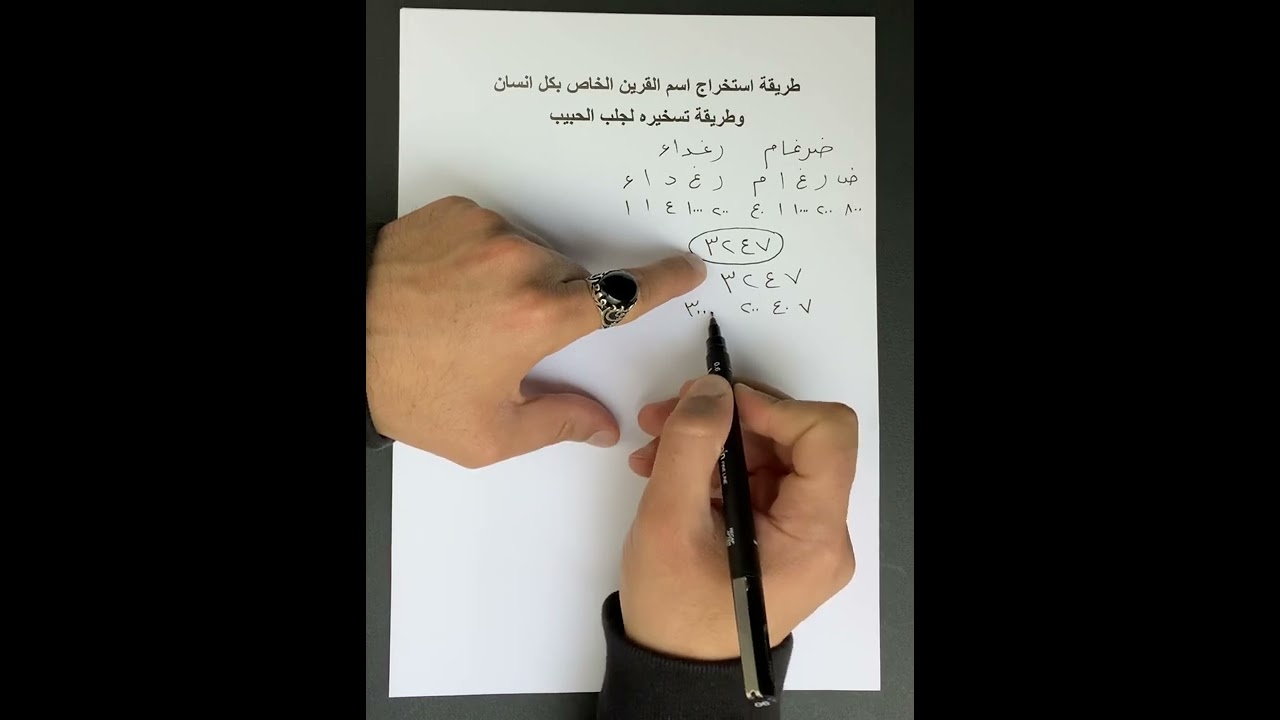 طريقة استخراج اسم القرين الخاص بكل انسان
وطريقة تسخيره لجلب الحبيب
ضرغام رغداء
ض ر غ ا م ر غ د ا ء
٨٠٠ ٢٠٠ ١٠٠٠ ١ ٤٠ ٢٠٠ ١٠٠٠ ٤ ١ ١
٣٢٤٧
٣٢٤٧
٧ ٤٠ ٢٠٠ ٣٠٠٠